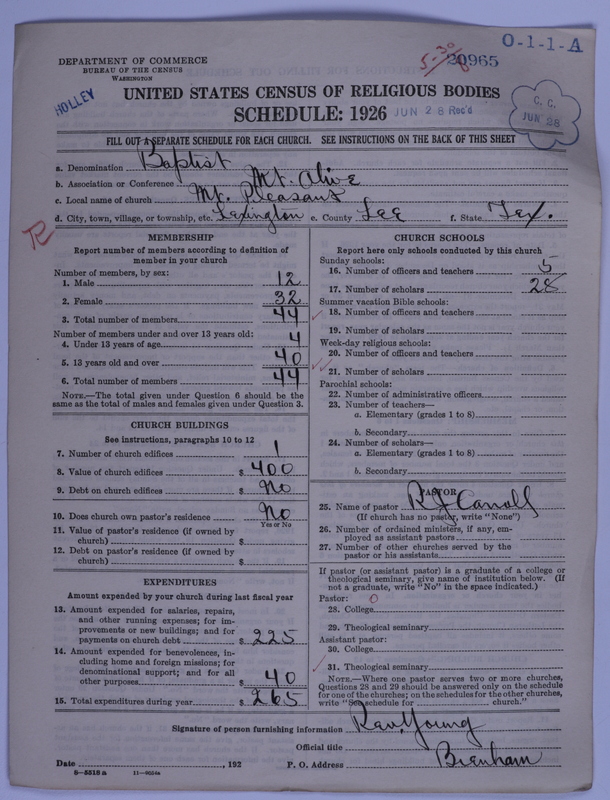 DEPARTMENT OF COMMERCE
BUREAU OF THE CENSUS
WASHINGTON
HOLLEY
5-30
20965
O-1-1-A
UNITED STATES CENSUS OF RELIGIOUS BODIES
SCHEDULE: 1926
JUN 28 Rec'd
C. C.
JUN 28
FILL OUT A SEPARATE SCHEDULE FOR EACH CHURCH. SEE INSTRUCTIONS ON THE BACK OF THIS SHEET
a. Denomination Baptist
b. Association or Conference Mt. Olive
c. Local name of church Mt. Pleasant
d. City, town, village, or township, etc. Lexington e. County Lee f. State Tex.
R
MEMBERSHIP
Report number of members according to definition of
member in your church
Number of members, by sex:
1. Male 12
2. Female 32
3. Total number of members 44
Number of members under and over 13 years old:
4. Under 13 years of age 4
5. 13 years old and over 40
6. Total number of members 44
NOTE.—The total given under Question 6 should be
same as the total of males and females given under Question 3.
CHURCH BUILDINGS
See instructions, paragraphs 10 to 12
7. Number of church edifices 1
8. Value of church edifices $ 400
9. Debt on church edifices $ No
10. Does church own pastor's residence No
Yes or No
11. Value of pastor's residence (if owned by
church) $
12. Debt on pastor's residence (if owned by
church) $
EXPENDITURES
Amount expended by your church during last fiscal year
13. Amount expended for salaries, repairs,
and other running expenses; for im-
provements or new buildings; and for
payments on church debt $ 225
14. Amount expended for benevolences, in-
cluding home and foreign missions; for
denominational support; and for all
other purposes $ 40
15. Total expenditures during year $ 265
CHURCH SCHOOLS
Report here only schools conducted by this church
Sunday schools:
16. Number of officers and teachers 5
17. Number of scholars 28
Summer vacation Bible schools:
18. Number of officers and teachers
19. Number of scholars
Week-day religious schools:
20. Number of officers and teachers
21. Number of scholars
Parochial schools:
22. Number of administrative officers
23. Number of teachers—
a. Elementary (grades 1 to 8)
b. Secondary
24. Number of scholars—
a. Elementary (grades 1 to 8)
b. Secondary
PASTOR
25. Name of pastor R J Carroll
(If church has no pastor, write "None")
26. Number of ordained ministers, if any, em-
ployed as assistant pastors
27. Number of other churches served by the
pastor or his assistants
If pastor (or assistant pastor) is a graduate of a college or
theological seminary, give name of institution below. (If
not a graduate, write "No" in the space indicated.)
Pastor: O
28. College
29. Theological seminary
Assistant pastor:
30. College
31. Theological seminary
NOTE.—Where one pastor serves two or more churches,
Questions 28 and 29 should be answered only on the schedule
for one of the churches; on the schedules for the other churches,
write "See schedule for church."
Signature of person furnishing information Young
Official title
Date , 192 P. O. Address Brenham
8-5518 a 11-9054a